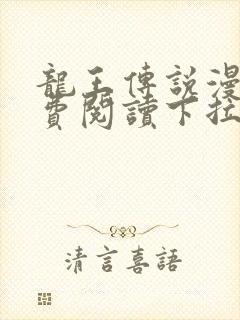 龍王傳說漫
費閱讀下拉
清言喜語